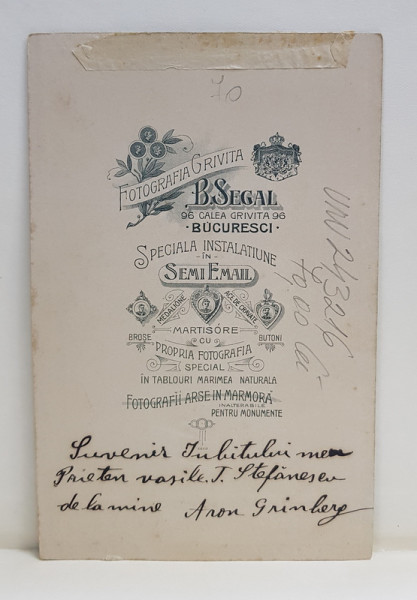 70
FOTOGRAFIA GRIVITA
B. SEGAL
96 CALEA GRIVITA 96
· BUCURESCI ·
SPECIALA INSTALATIUNE
- IN -
SEMI EMAIL
MEDALIOANE
ACE DE CRAVATE
BROSE
BUTONI
MARTISÓRE
CU
PROPRIA FOTOGRAFIA
SPECIAL
ÎN TABLOURI MARIMEA NATURALA
FOTOGRAFII ARSE IN MARMORĂ
INALTERABILE
PENTRU MONUMENTE
Suvenir Iubitului meu
Prieten vasile. T. Stefănescu
de la mine Aron Grinberg